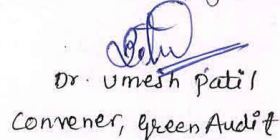 Dr. Umesh Patil
Convener, Green Audit